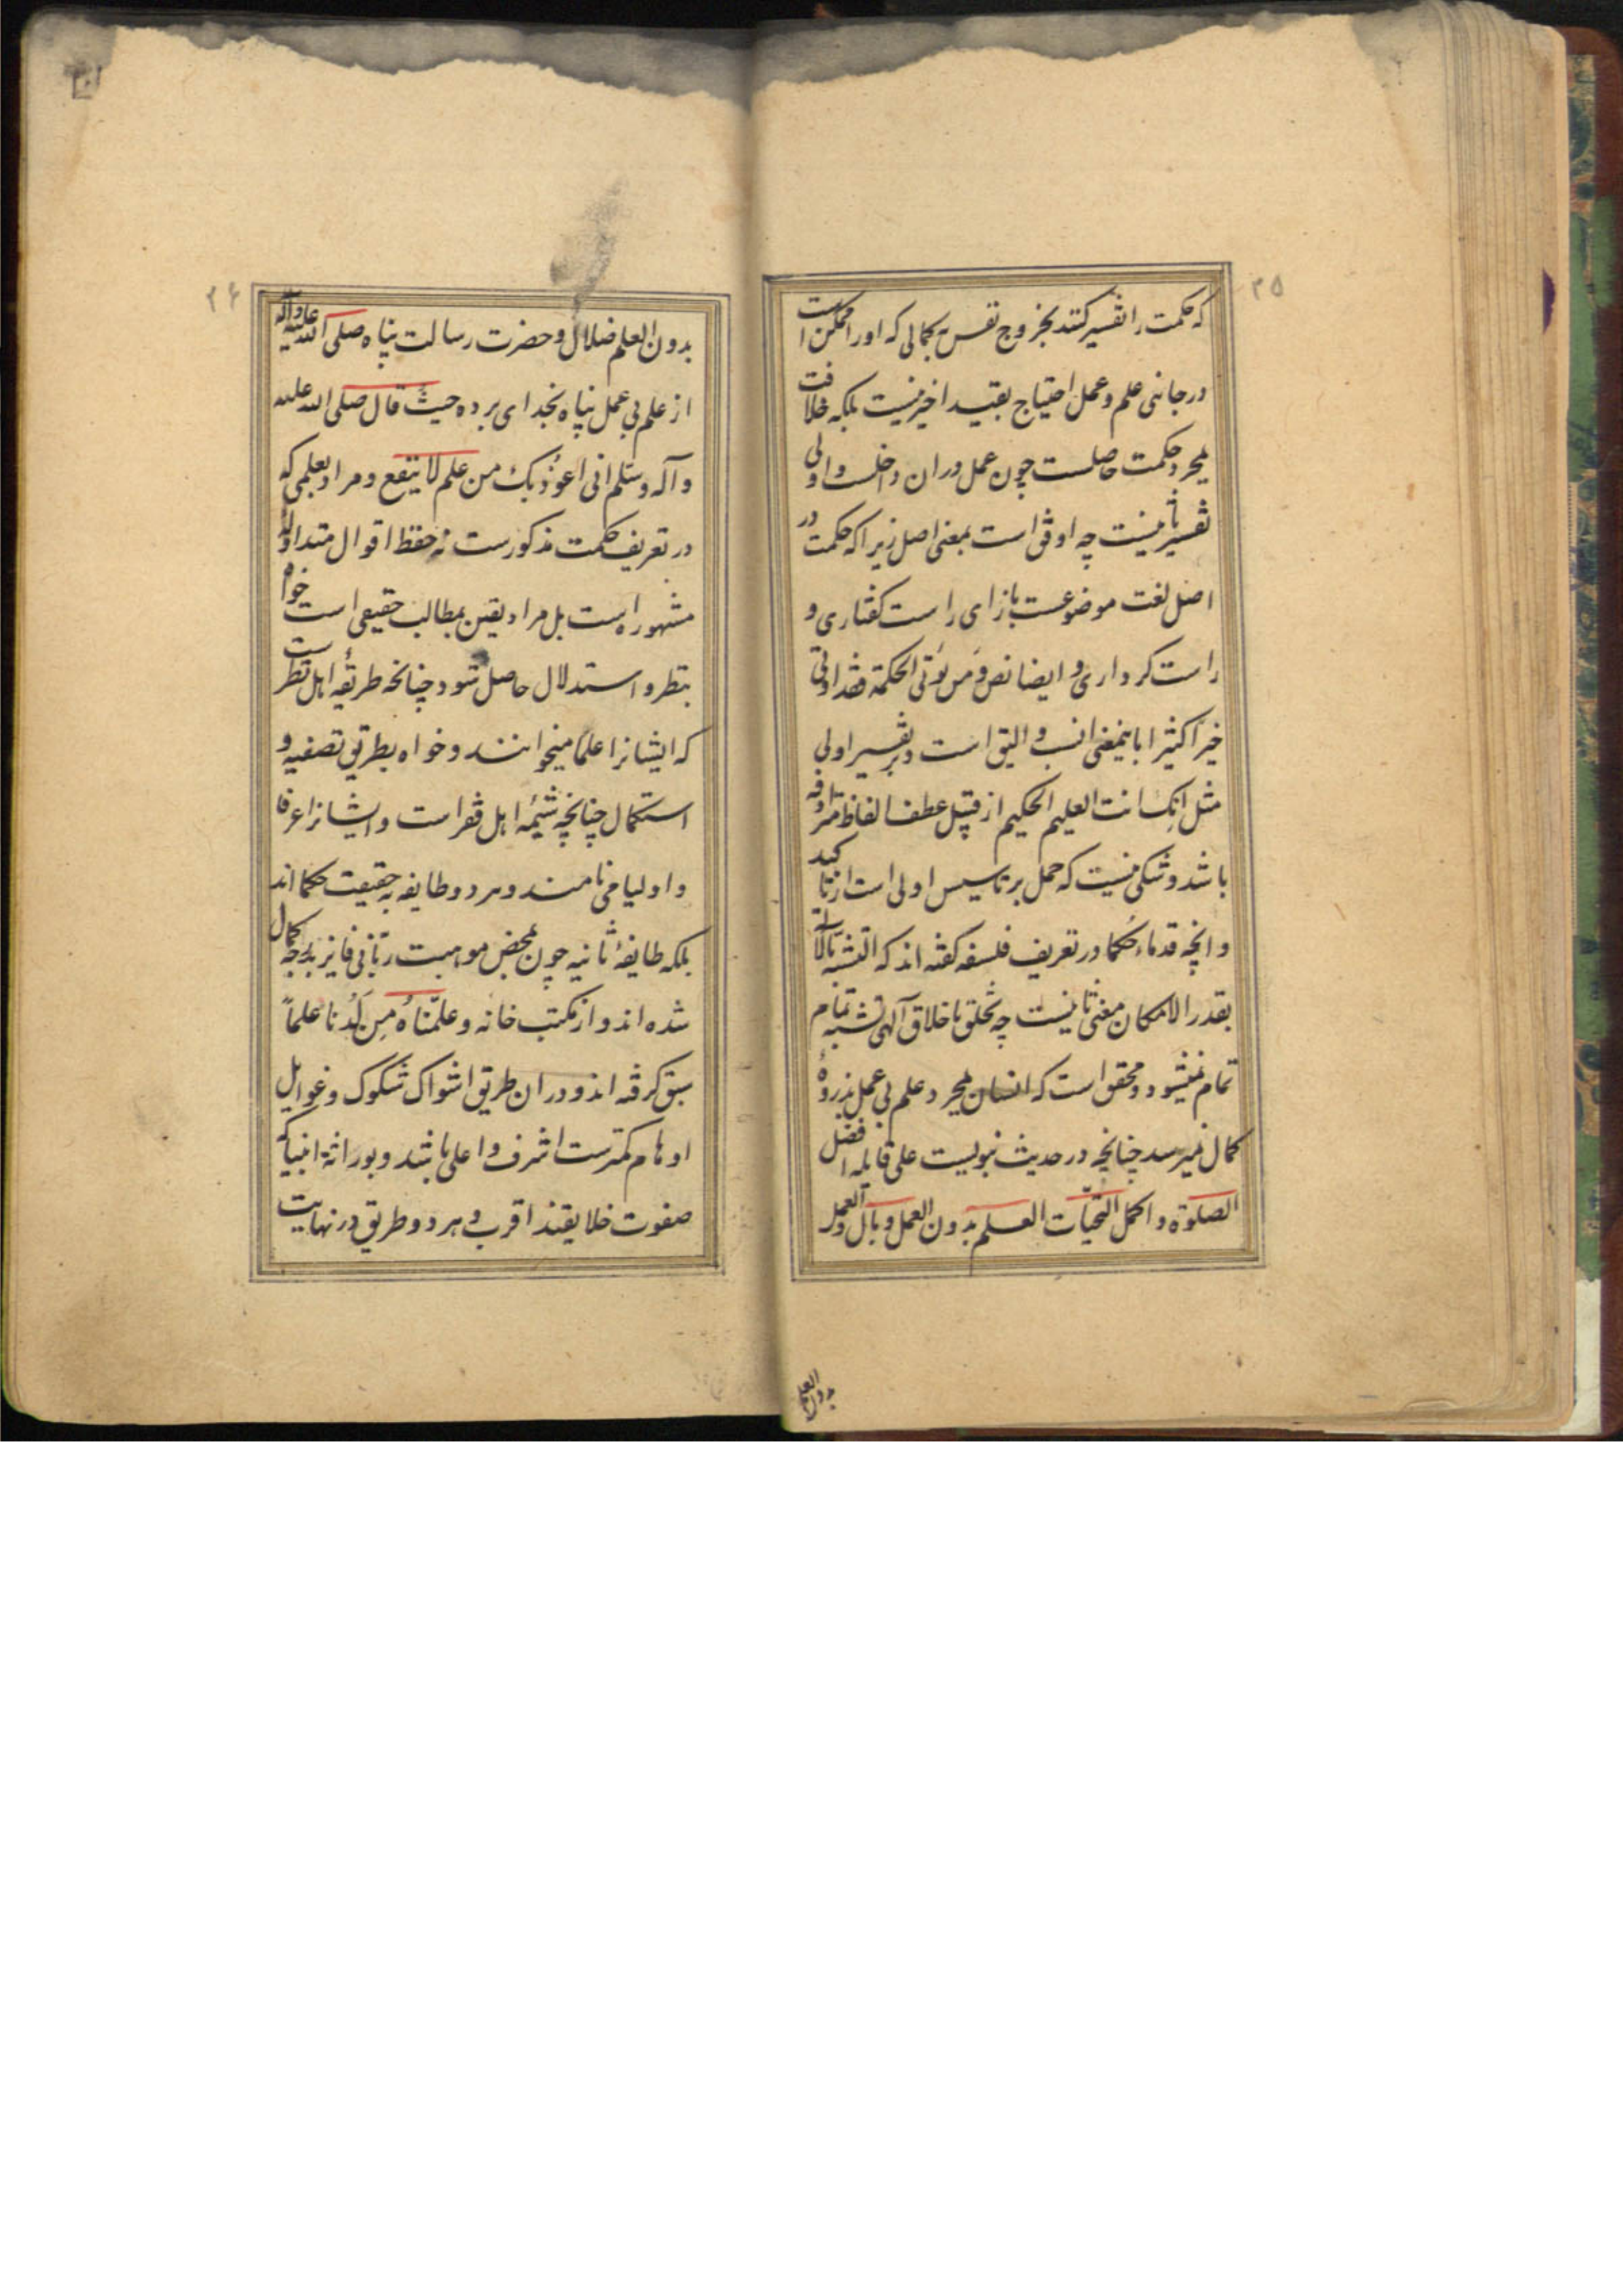 ۲۵
که حکمت را تفسیر کنند بخروج نفس بکمالی که او را ممکن است
در جانبی علم و عمل احتیاج بقید اخیر نیست بلکه خلافت
بمجرد حکمت حاصلست چون عمل دران داخلست و اولی
تفسیر ثانیست چه اوفق است بمعنی اصل زیرا که حکمت در
اصل لغت موضوعست بازای راست گفتاری و
راست کرداری و ایضا نص وَمن یُؤتی الحکمة فقد اوتی
خیرًا کثیرا باینمعنی انسب و الیق است و بر تفسیر اولی
مثل انک انت العلیم الحکیم از قبیل عطف الفاظ مترادفه
باشد و شکی نیست که حمل بر تاسیس اولی است از تاکید
و انچه قدماء حُکما در تعریف فلسفه گفته اند که التشبّه بالاله
بقدر الامکان معنی ثانیست چه تخلق باخلاق آلهی تشبه تمام
تمام نمیشود و محقق است که انسان بمجرد علم بی عمل بذروهٔ
کمال نمیرسد چنانچه در حدیث نبویست علی قایله افضل
الصلوة و اکمل التحیّات العلم بدون العمل وبال والعمل
بدون العلم
۲۶
بدون العلم ضلال و حضرت رسالت پناه صلی الله علیه وآله
از علم بی عمل پناه بخدای برده حیث قال صلی الله علیه
وآله وسلم انی اعوُذ بک من علم لا ینفع و مراد بعلمی که
در تعریف حکمت مذکورست نه حفظ اقوال متداوله
مشهوره است بل مراد یقین بمطالب حقیقی است خواه
بنظر و استدلال حاصل شود چنانچه طریقهٔ اهل نظرست
که ایشانرا علما میخوانند و خواه بطریق تصفیه و
استکمال چنانچه شیمهٔ اهل فقر است و ایشانرا عرفا
و اولیا می نامند و هر دو طایفه به حقیقت حکما اند
بلکه طایفهٔ ثانیه چون بمحض موهبت ربّانی فایز بدرجه کمال
شده اند و از مکتب خانه و علّمناهُ مِن لَدُنا علماً
سبق گرفته اند و دران طریق اشواک شکوک و غوایل
اوهام کمترست اشرف و اعلی باشد و بوراثهٔ انبیا که
صفوت خلایقند اقرب و هر دو طریق در نهایت